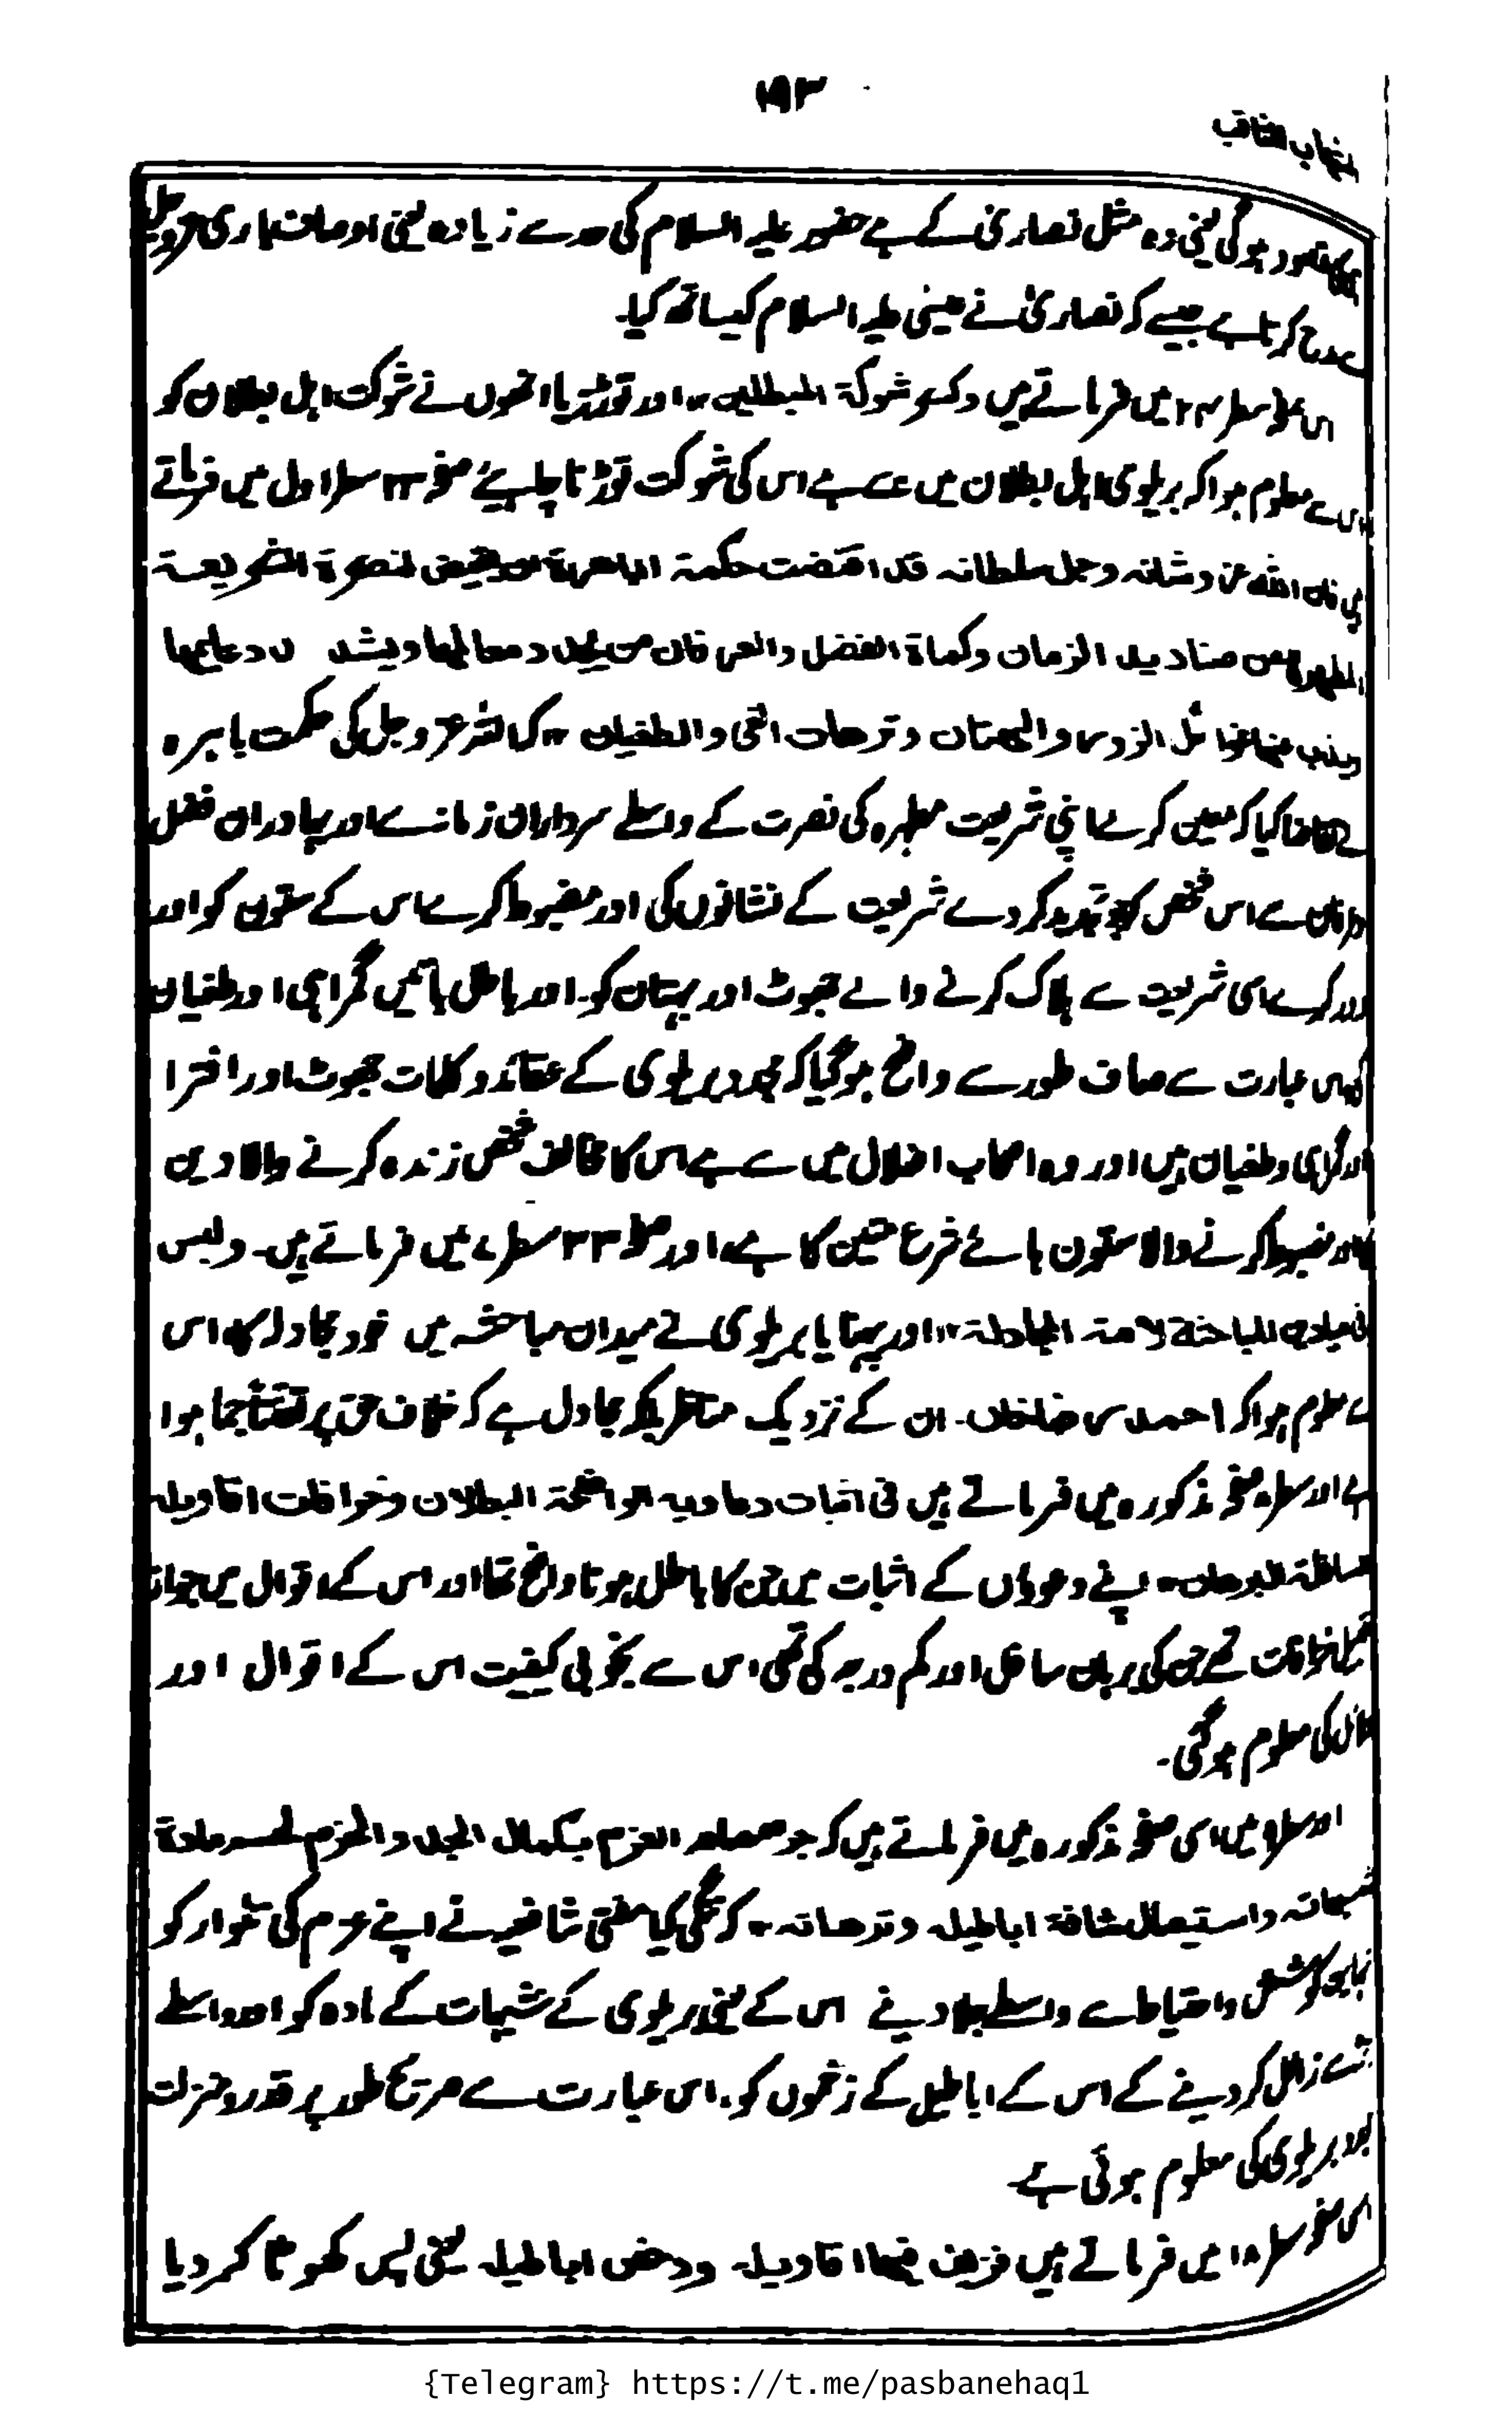 ۱۹۳
الشہاب الثاقب
مقصود ہوگی یعنی وہ مثل نصاریٰ کے ہے حضور علیہ السلام کی حد سے زیادہ یعنی اوصاف باری عزوجل
سے مدح کرتا ہے جیسے کہ نصاریٰ نے عیسیٰ علیہ السلام کیساتھ کیا۔
سطر ۲۴ میں فرماتے ہیں وکسر شوکۃ المبطلین۔ اور توڑ دیا انھوں نے شوکت اہل بطلان کو
اس سے معلوم ہوا کہ بریلوی اہل بطلان میں سے ہے اس کی شوکت توڑنا چاہیئے صفحہ ۲۳ سطر اول میں فرماتے
ہیں فان اللہ عز و شانہ وجل سلطانہ قد اقتضت حکمۃ الباھرۃ ان یقیض لنصرۃ الشریعۃ
المطھرۃ من صنادید الزمان وکماۃ الفضل والعرفان من یجدد معالمھا ویشد دعایمھا
ویذب عنھا غوائل الزور والبھتان وترھات الغی والطغیان ۔ کہ اللہ عزوجل کی حکمت باہرہ
نے تقاضا کیا کہ معین کرے اپنی شریعت مطہرہ کی نصرت کے واسطے سرداران زمانے اور بہادران فضل
وعرفان سے اس شخص کو جو تجدید کر دے شریعت کے نشانوں کی اور مضبوط کرے اس کے ستون کو اور
دور کرے اس شریعت سے ہلاک کرنے والے جھوٹ اور بہتان کو۔ اور باطل باتیں گمراہی اور طغیان
کو اس عبارت سے صاف طور سے واضح ہو گیا کہ مجدد بریلوی کے عقائد و کلمات جھوٹ اور افترا
اور گمراہی و طغیان ہیں اور وہ اصحاب اضلال میں سے ہے اس کا مخالف شخص زندہ کرنے والا دین
کا اور مضبوط کرنے والا ستون ہائے شرع متین کا ہے، اور صفحہ ۲۳ سطر ۷ میں فرماتے ہیں۔ ولبس
فی میادین المباحثۃ لامۃ المجادلۃ ۔ اور پہنا یا بریلوی نے میدان مباحثہ میں خود مجادلہ کا اس
سے معلوم ہوا کہ احمد رضا خاں۔ ان کے نزدیک مناظر بلکہ مجادل ہے کہ خلاف حق پر قصداً جما ہوا
ہے اور سطر ۸ صفحہ مذکورہ میں فرماتے ہیں فی اثبات دعاویہ الواضحۃ البطلان وخرافات اقاویلہ
الساقطۃ البرھان۔ اپنے دعوؤں کے اثبات میں جن کا باطل ہونا واضح تھا اور اس کے اقوال میں جو از
قبیل خرافات تھے جن کی برہان ساقط اور کم درجہ کی تھی، اس سے بخوبی کیفیت اس کے اقوال اور
کی معلوم ہو گئی۔
اور سطر میں اسی صفحہ مذکورہ میں فرماتے ہیں کہ جرد صمصام العزم بکمال الجد والحزم لحسم مادۃ
شبھاتہ واستیصال شافۃ اباطیلہ وترھاتہ ۔ کہ ننگی کیا مفتی شافعیہ نے اپنے عزم کی تلوار کو
نہایت کوشش و احتیاط سے واسطے دینے اس کے یعنی بریلوی کے شبہات کے مادہ کو اور واسطے
جڑ سے زائل کر دینے کے اس کے اباطیل کے زخموں کو۔ اس عبارت سے صریح طور پر قدر و منزلت
بریلوی کی معلوم ہوتی ہے۔
اسی صفحہ سطر ۱۸ میں فرماتے ہیں فزیف فیھا اقاویلہ ودحض اباطیلہ یعنی پس کھوٹا کر دیا
{Telegram} https://t.me/pasbanehaq1